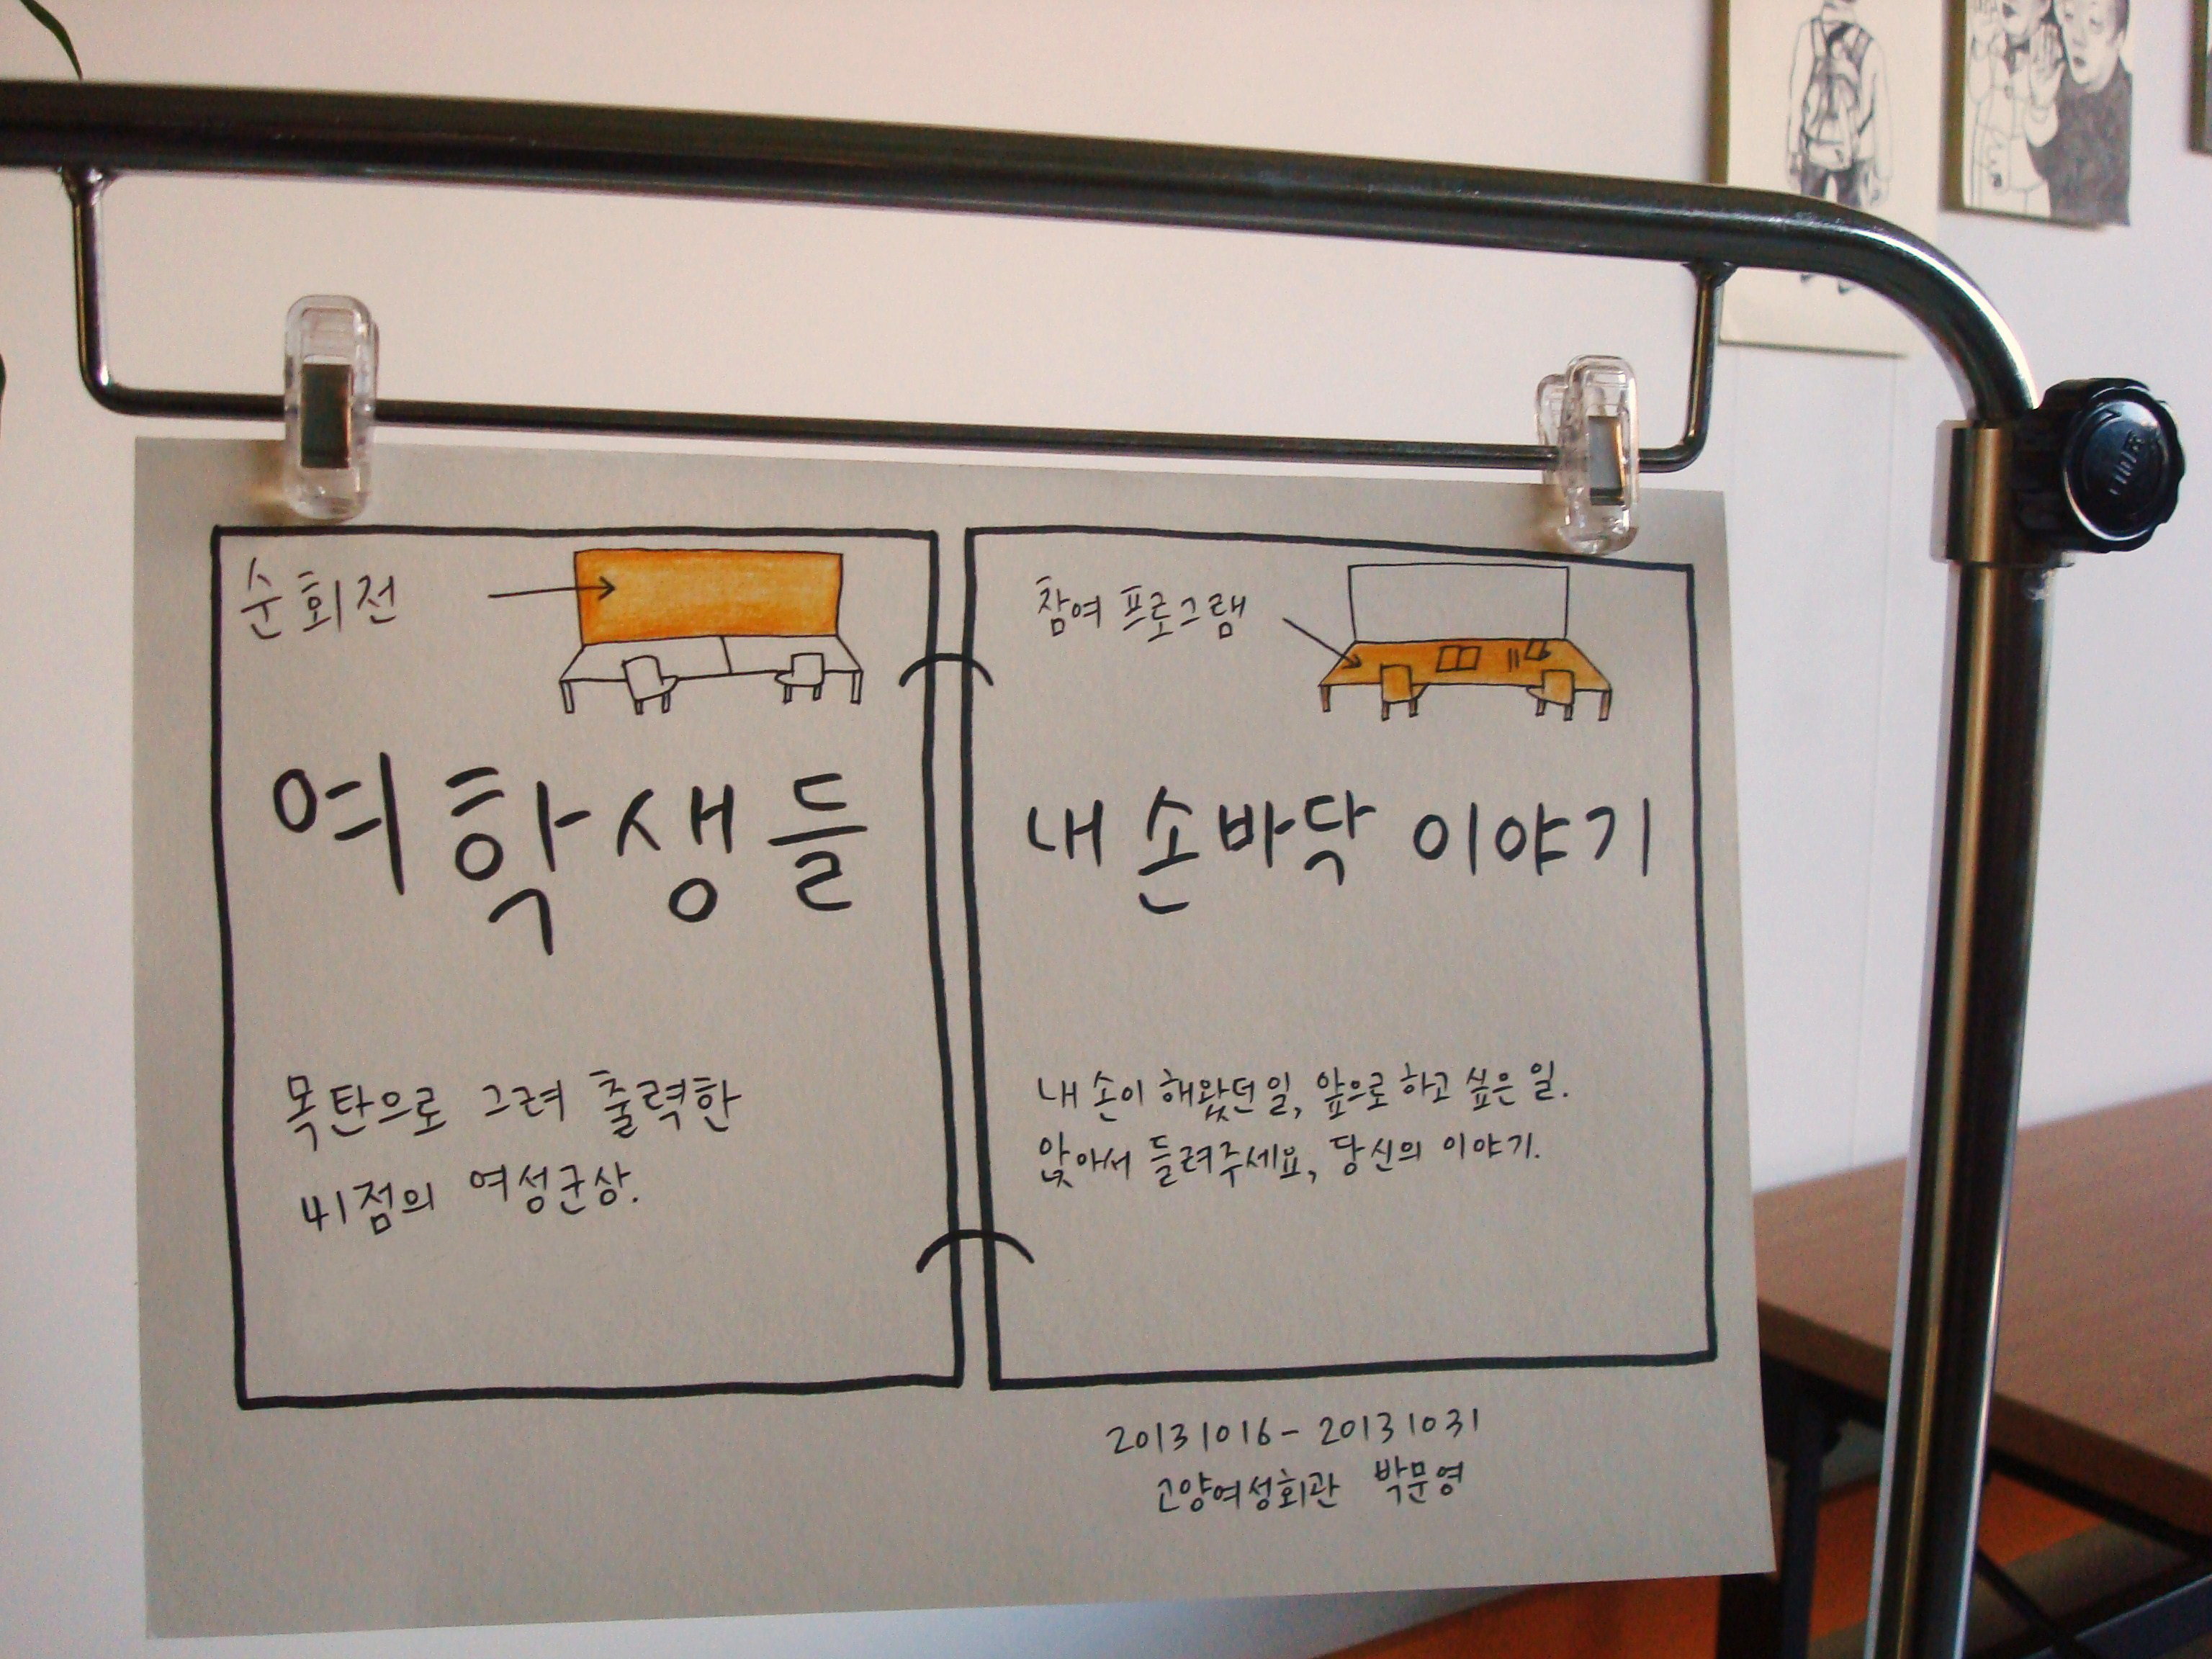 순회전
여학생들
목탄으로 그려 출력한
41점의 여성군상.
참여 프로그램
내 손바닥 이야기
내 손이 해왔던 일, 앞으로 하고 싶은 일.
앉아서 들려주세요, 당신의 이야기.
20131016 - 20131031
고양여성회관 박문영